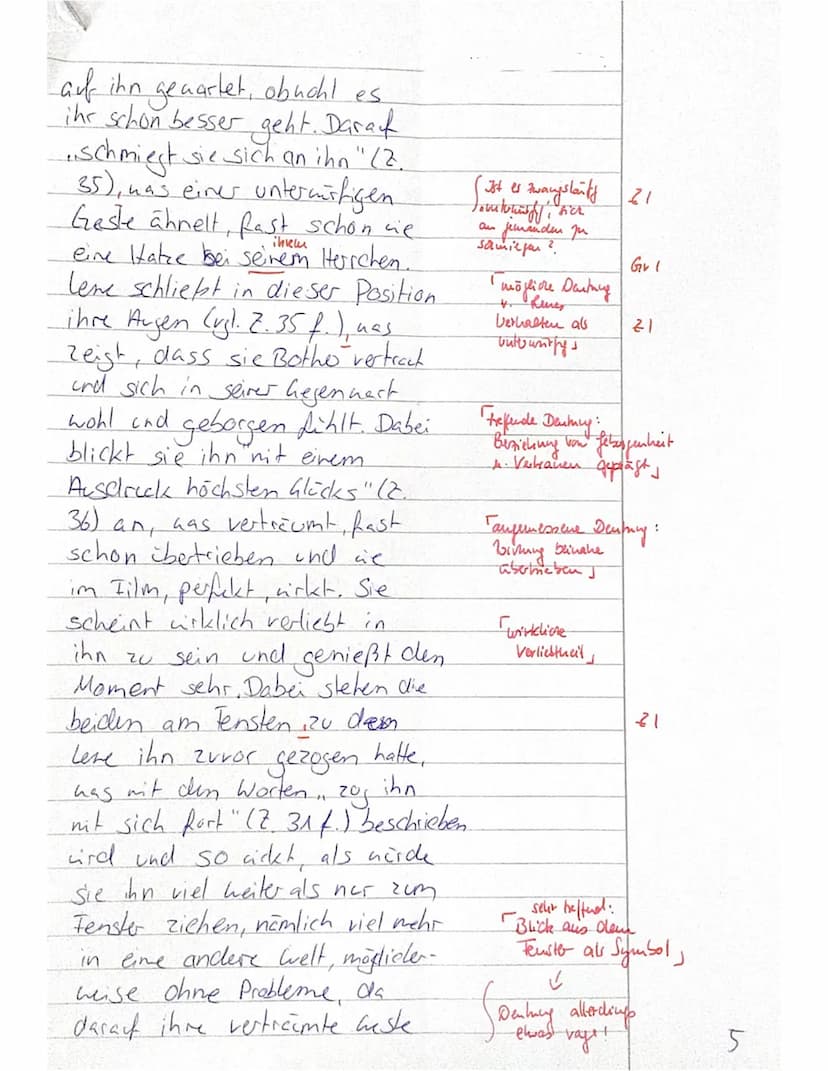 auf ihn gewartet, obwohl es
ihr schon besser geht. Darauf
„schmiegt sie sich an ihn" (Z.
35), was einer unterwürfigen
Geste ähnelt, fast schon wie
eine Katze bei seinem Herrchen.
ihrem
Lene schließt in dieser Position
ihre Augen (vgl. Z. 35 f.), was
zeigt, dass sie Botho vertraut
und sich in seiner Gegenwart
wohl und geborgen fühlt. Dabei
blickt sie ihn „mit einem
Ausdruck höchsten Glücks" (Z.
36) an, was verträumt, fast
schon übertrieben und wie
im Film, perfekt, wirkt. Sie
scheint wirklich verliebt in
ihn zu sein und genießt den
Moment sehr. Dabei stehen die
beiden am Fenster, zu dem
Lene ihn zuvor gezogen hatte,
was mit den Worten „zog ihn
mit sich fort" (Z. 31 f.) beschrieben
wird und so wirkt, als würde
sie ihn viel weiter als nur zum
Fenster ziehen, nämlich viel mehr
in eine andere Welt, möglicher-
weise ohne Probleme, da
darauf ihre verträumte Geste
Ist es zwangsläufig
unterwürfig, sich
an jemanden zu
schmiegen?
Z I
Gr I
mögliche Deutung
v. Lenes
Verhalten als
unterwürfig
Z I
treffende Deutung:
Beziehung von Geborgenheit
u. Vertrauen geprägt
angemessene Deutung:
Wirkung beinahe
übertrieben
wirkliche
Verliebtheit
Z I
sehr treffend:
Blick aus dem
Fenster als Symbol
Deutung allerdings
etwas vage!
5